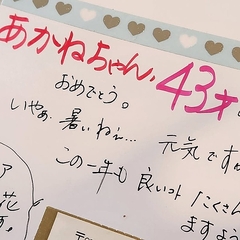 あかねちゃん、43才
おめでとう。
いやぁ、暑いねぇ…
元気です
この一年も 良いコト たくさん
ますよう
ア
花